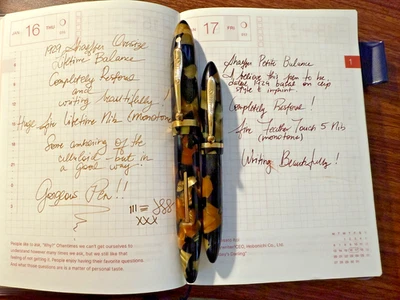 16
1929 Sheaffer Oversize
Lifetime Balance
Completely Restored
and
writing beautifully!
Huge Fine Lifetime Nib (monotone)
Some ambering of the
celluloid - but in
a good way...
Gorgeous Pen!!
People like to ask, "Why?" Oftentimes we can't get ourselves to
understand however many times we ask, but we still like that
feeling of not getting it. People enjoy having their favorite questions.
And what those questions are is a matter of personal taste.
17
1
Sheaffer Petite Balance
I believe this pen to be
circa 1929 based on clip
style & imprint.
Completely Restored!
Fine Feather Touch 5 Nib
(monotone)
Writing Beautifully!